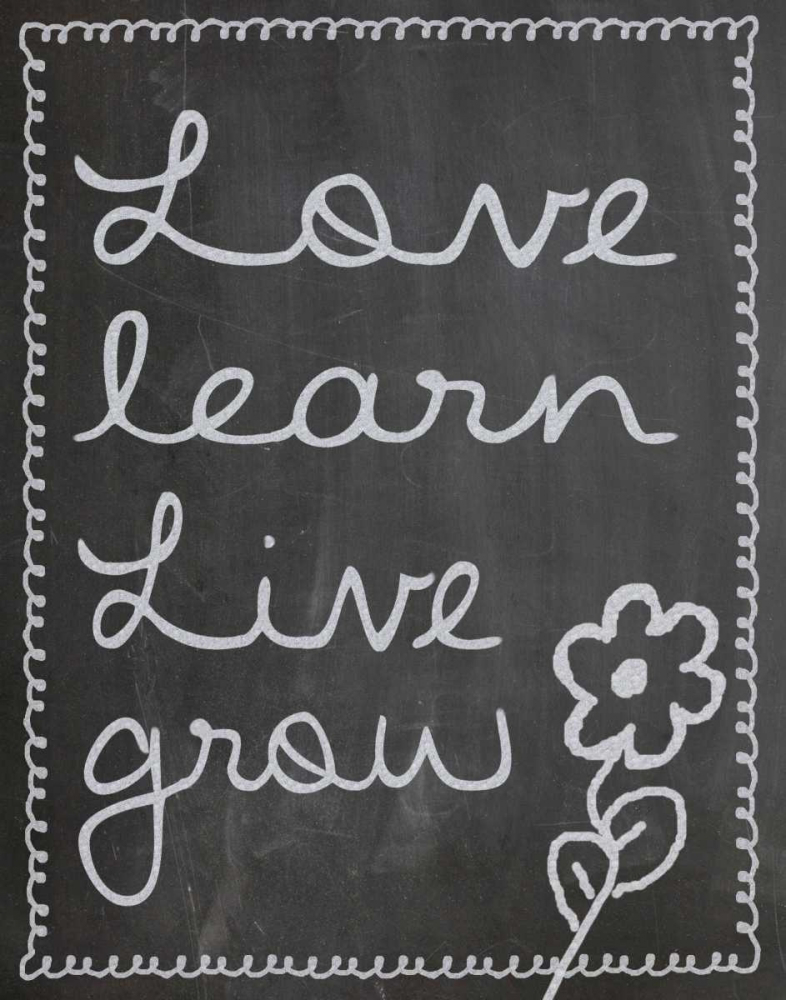 Love
learn
Live
grow